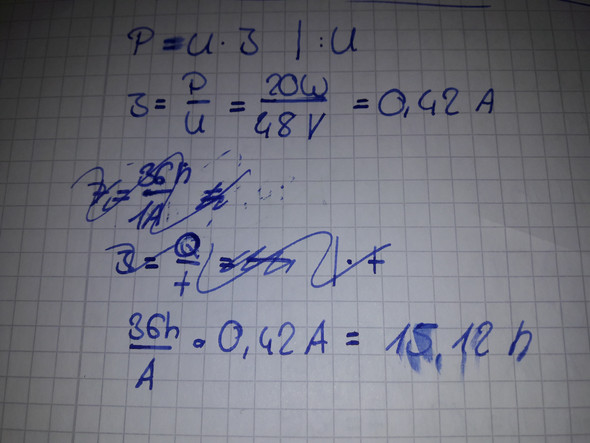 P = U · I | : U
I = P/U = 20W/48V = 0,42 A
36h/1A
I = Q/t = | · t
36h/A · 0,42 A = 15,12 h